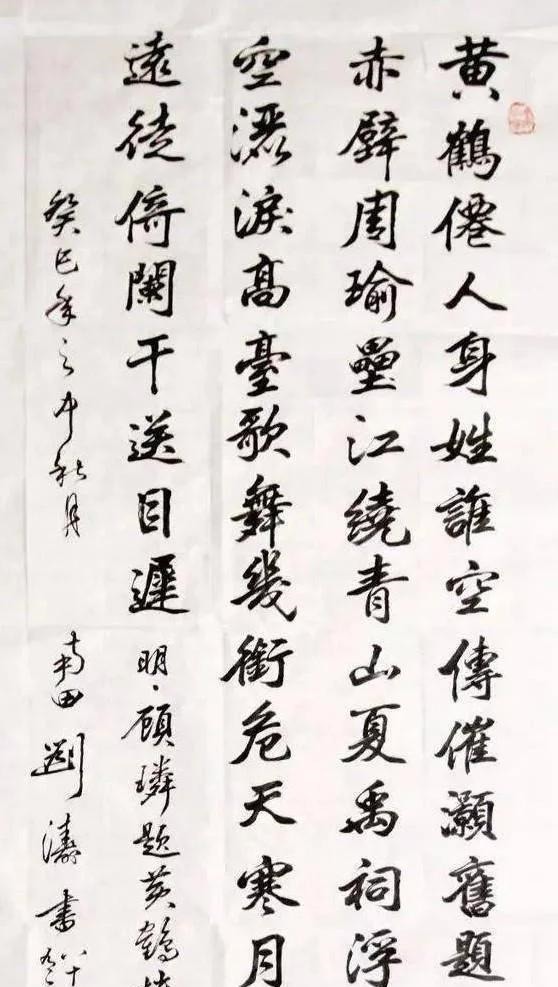 黄鶴僊人身姓誰空傳催灝舊題
赤壁周瑜壘江繞青山夏禹祠浮
空灑淚髙臺歌舞幾銜危天寒月
遠徒倚闌干送目遲 明·顾璘题黄鹤
癸巳年之中秋月 南田 劉濤書 八十